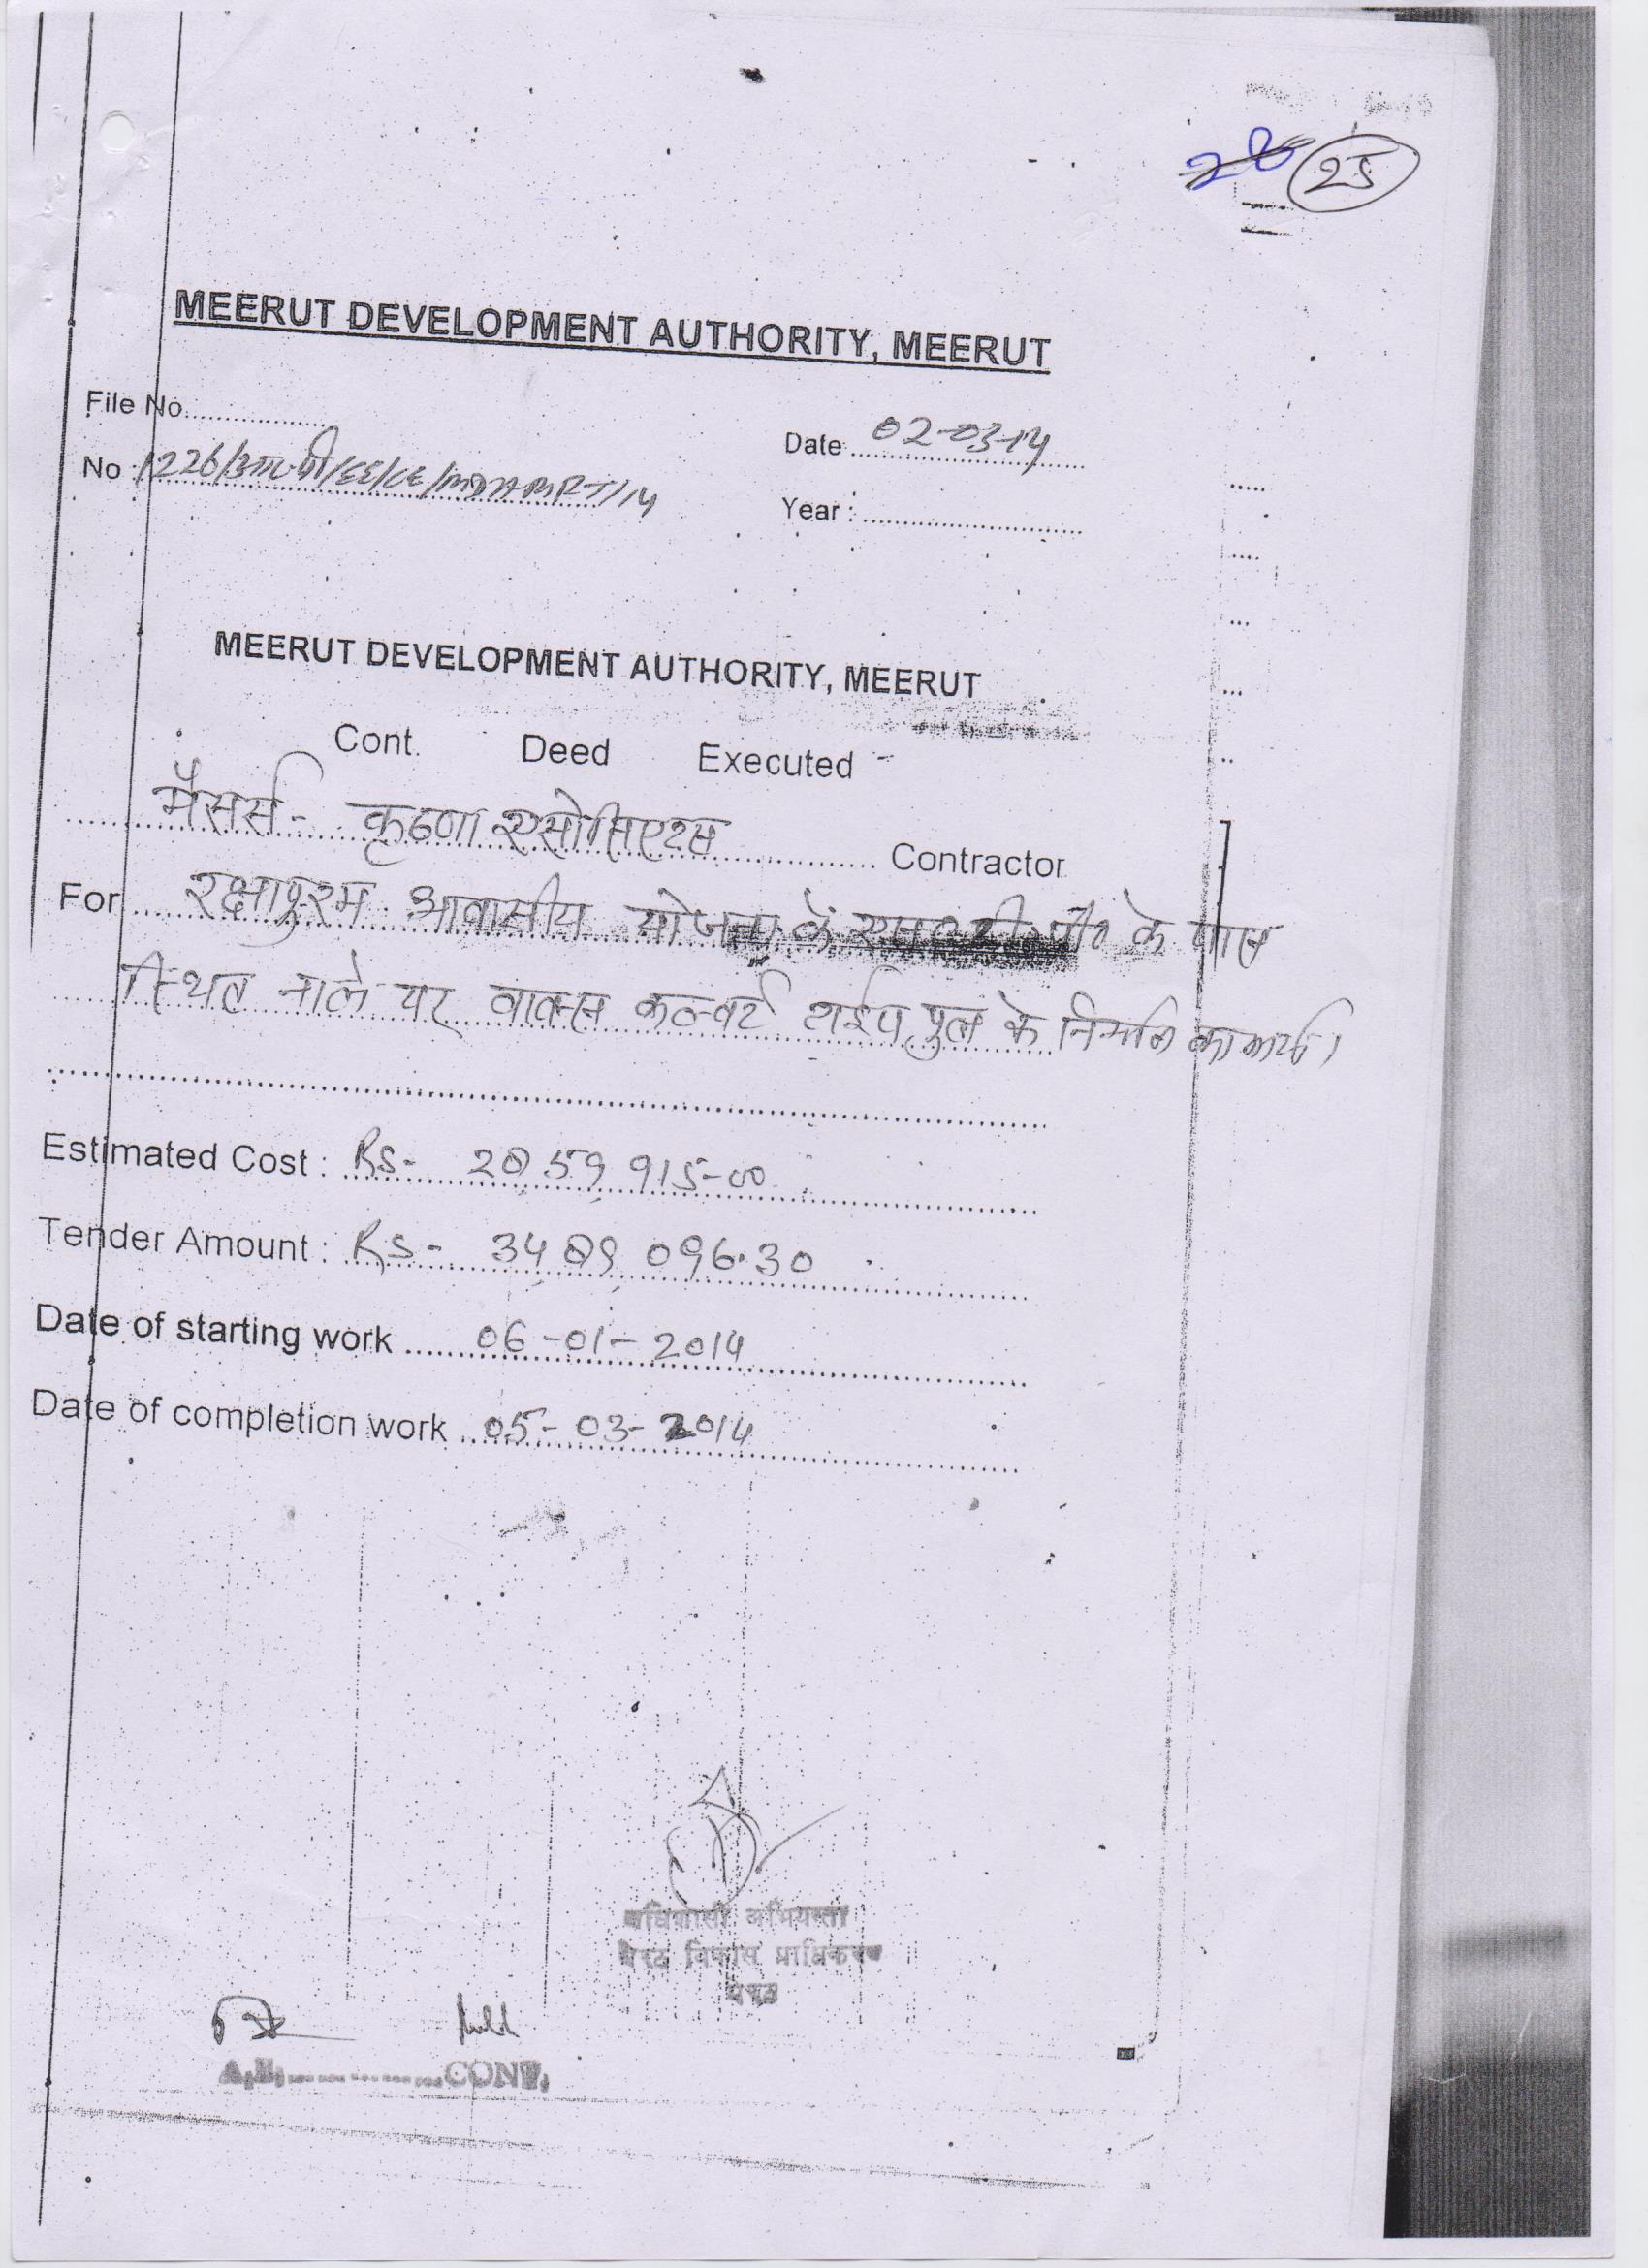 28 25
MEERUT DEVELOPMENT AUTHORITY, MEERUT
File No.....................
Date 02-03-14
No 1226/आर०पी/EE/CE/MDA MRT/14
Year : ..............................
MEERUT DEVELOPMENT AUTHORITY, MEERUT
Cont. Deed Executed
मैसर्स- कृष्णा एसोसिएटस Contractor
For रक्षापुरम आवासीय योजना के एस०टी०पी० के पास
स्थित नाले पर वाक्स कल्वर्ट टाईप पुल के निर्माण का कार्य।
Estimated Cost : Rs- 2059915-00
Tender Amount : Rs- 3409096.30
Date of starting work 06-01-2014
Date of completion work 05-03-2014
अधिशासी अभियन्ता
मेरठ विकास प्राधिकरण
मेरठ
A.E. CONT.